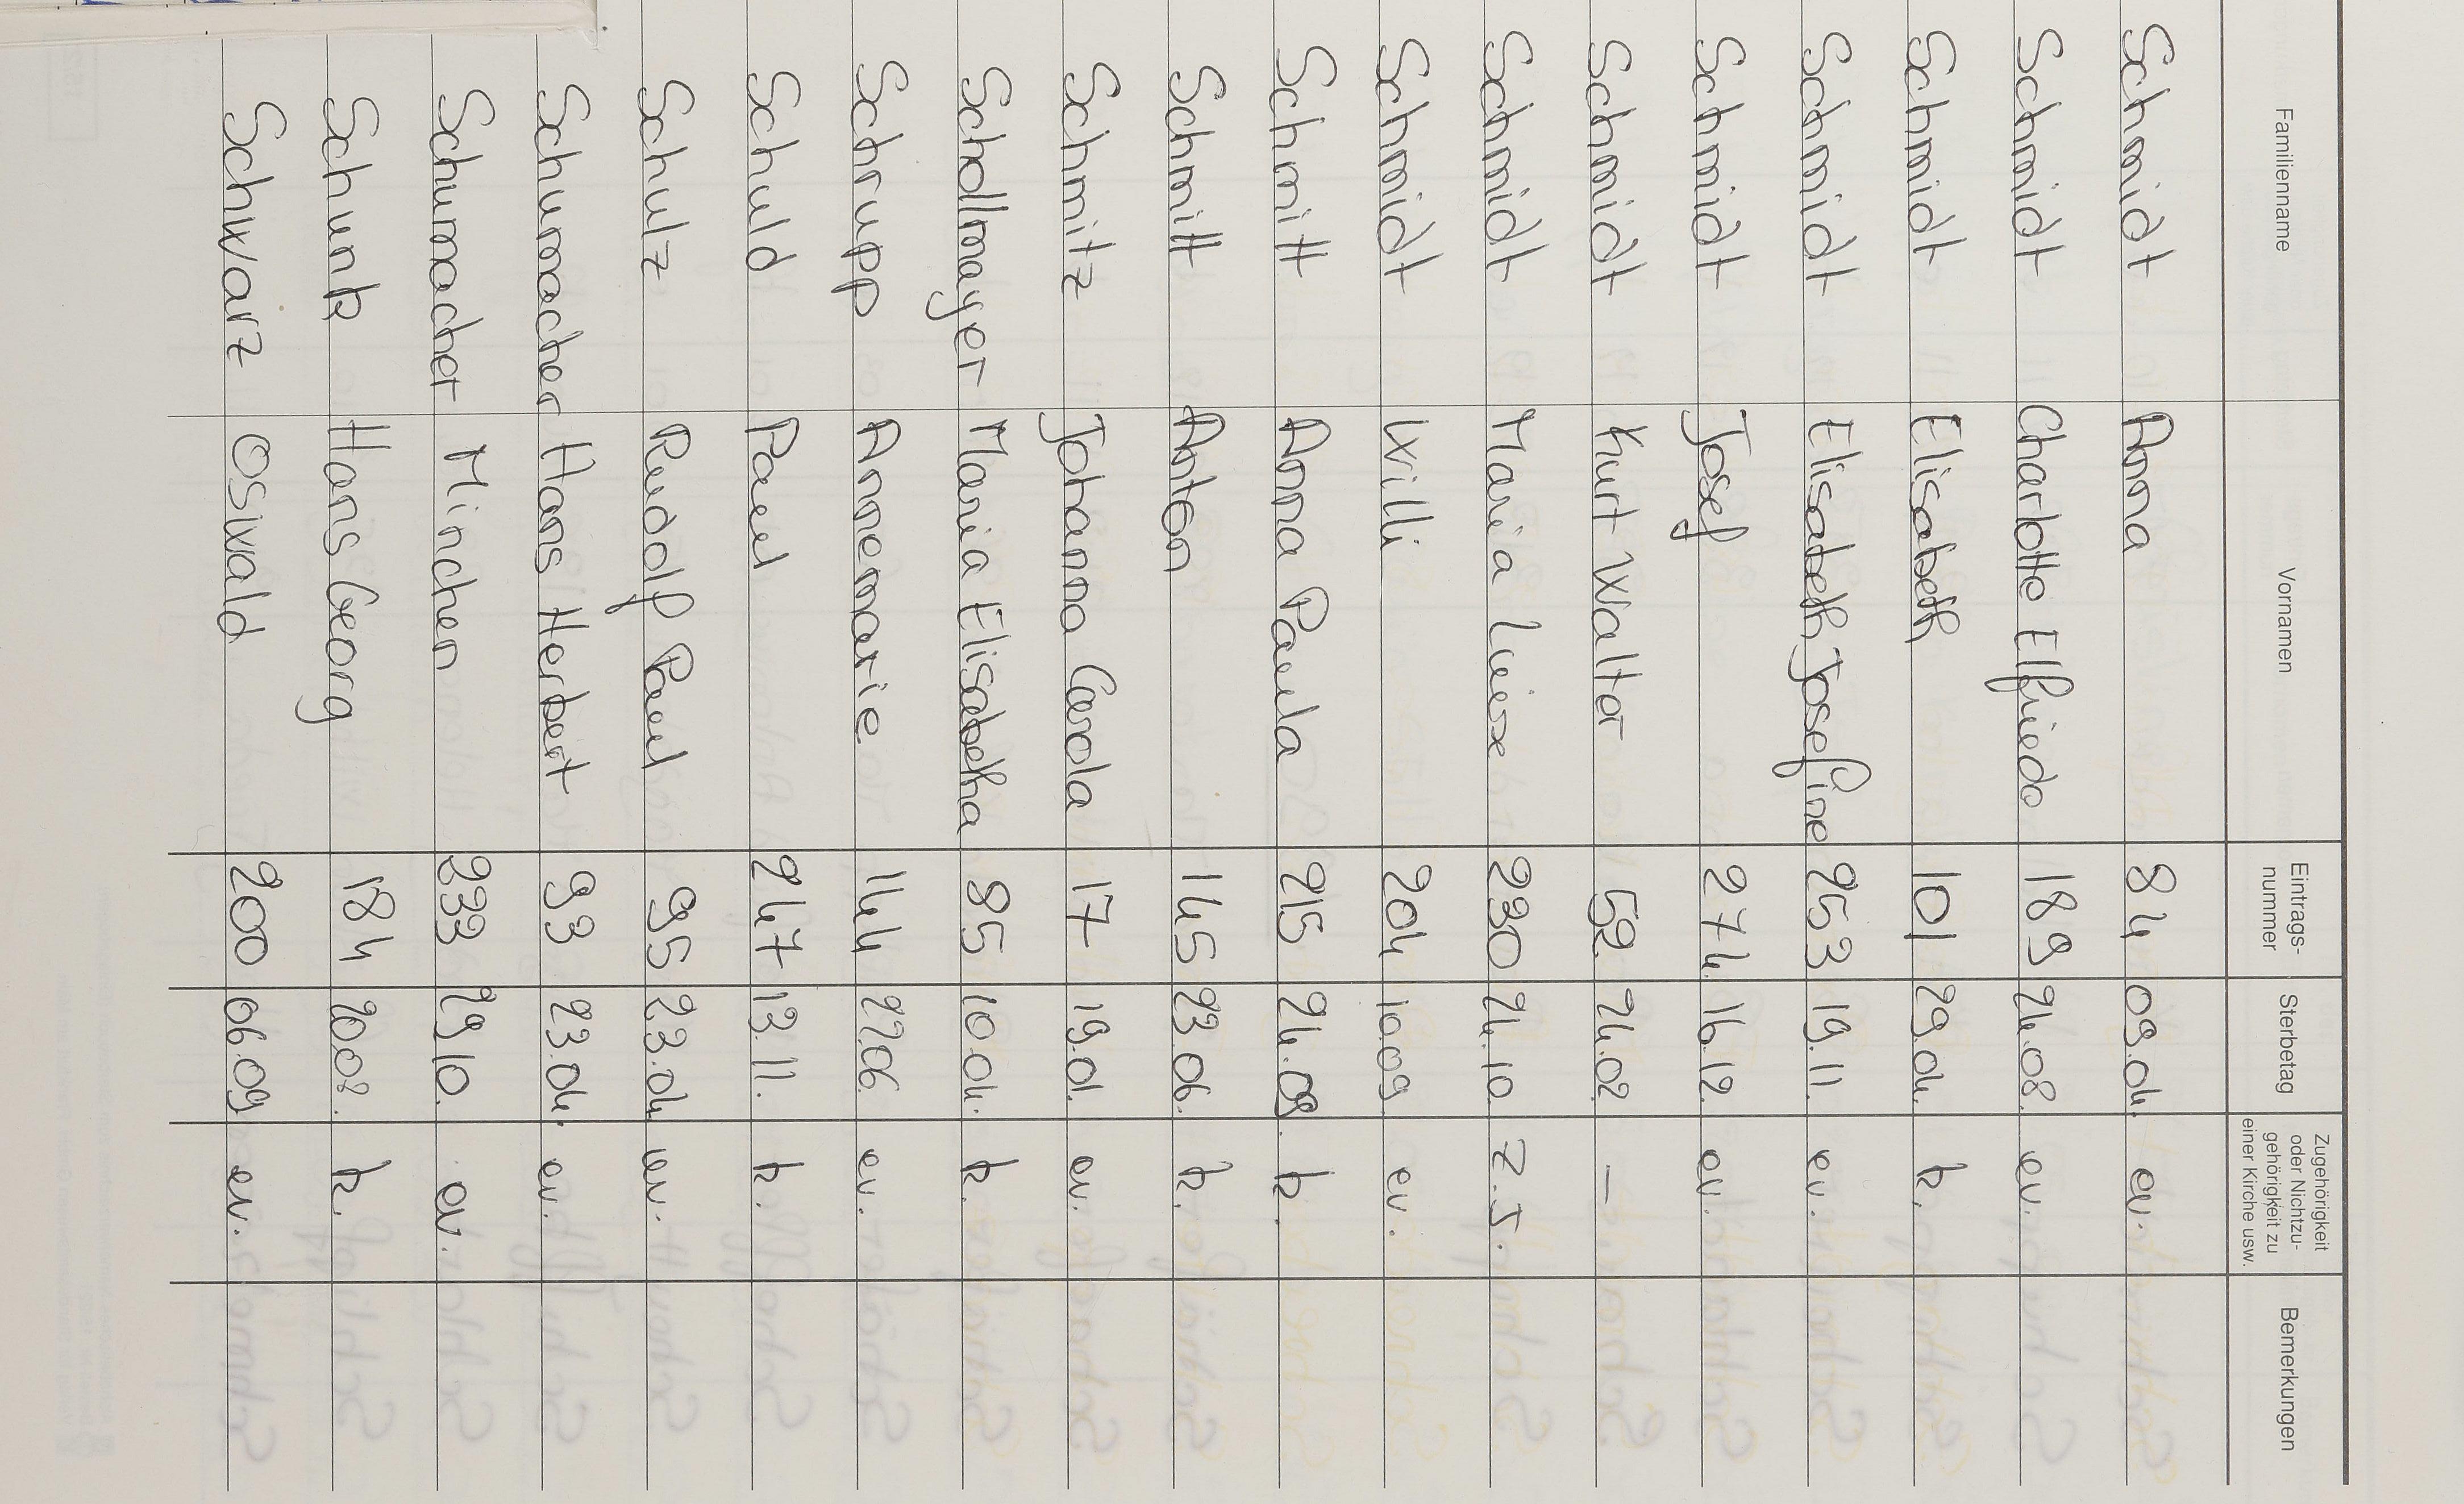 Familienname Vornamen Eintrags-nummer Sterbetag Zugehörigkeit oder Nichtzu-gehörigkeit zu einer Kirche usw. Bemerkungen
Schmidt Anna 84 09.04. ev.
Schmidt Charlotte Elfriede 189 24.08. ev.
Schmidt Elisabeth 101 29.04. k.
Schmidt Elisabeth Josefine 253 19.11. ev.
Schmidt Josef 274 16.12. ev.
Schmidt Kurt Walter 52 24.02. –
Schmidt Maria Luise 230 24.10. Z.J.
Schmidt Willi 204 10.09. ev.
Schmitt Anna Paula 215 24.09. k.
Schmitt Anton 145 23.06. k.
Schmitz Johanna Carola 17 19.01. ev.
Schollmayer Maria Elisabetha 85 10.04. k.
Schrupp Annemarie 144 22.06. ev.
Schuld Paul 247 13.11. k.
Schulz Rudolf Paul 95 23.04. ev.
Schumacher Hans Herbert 93 23.04. ev.
Schumacher Minchen 233 29.10. ev.
Schunk Hans Georg 184 20.08. k.
Schwarz Oswald 200 06.09. ev.